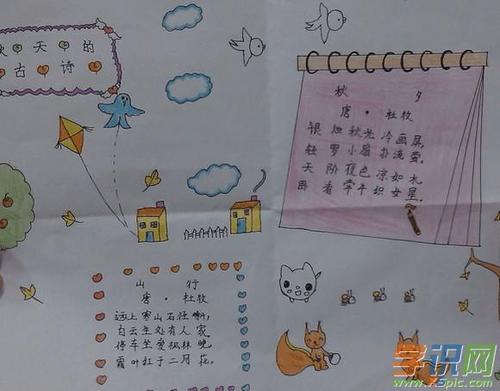 秋天的
古诗
秋夕
唐·杜牧
银烛秋光冷画屏,
轻罗小扇扑流萤。
天阶夜色凉如水
卧看牵牛织女星。
山行
唐·杜牧
远上寒山石径斜,
白云生处有人家
停车坐爱枫林晚
霜叶红于二月花。
学识网
www.x5pic.com